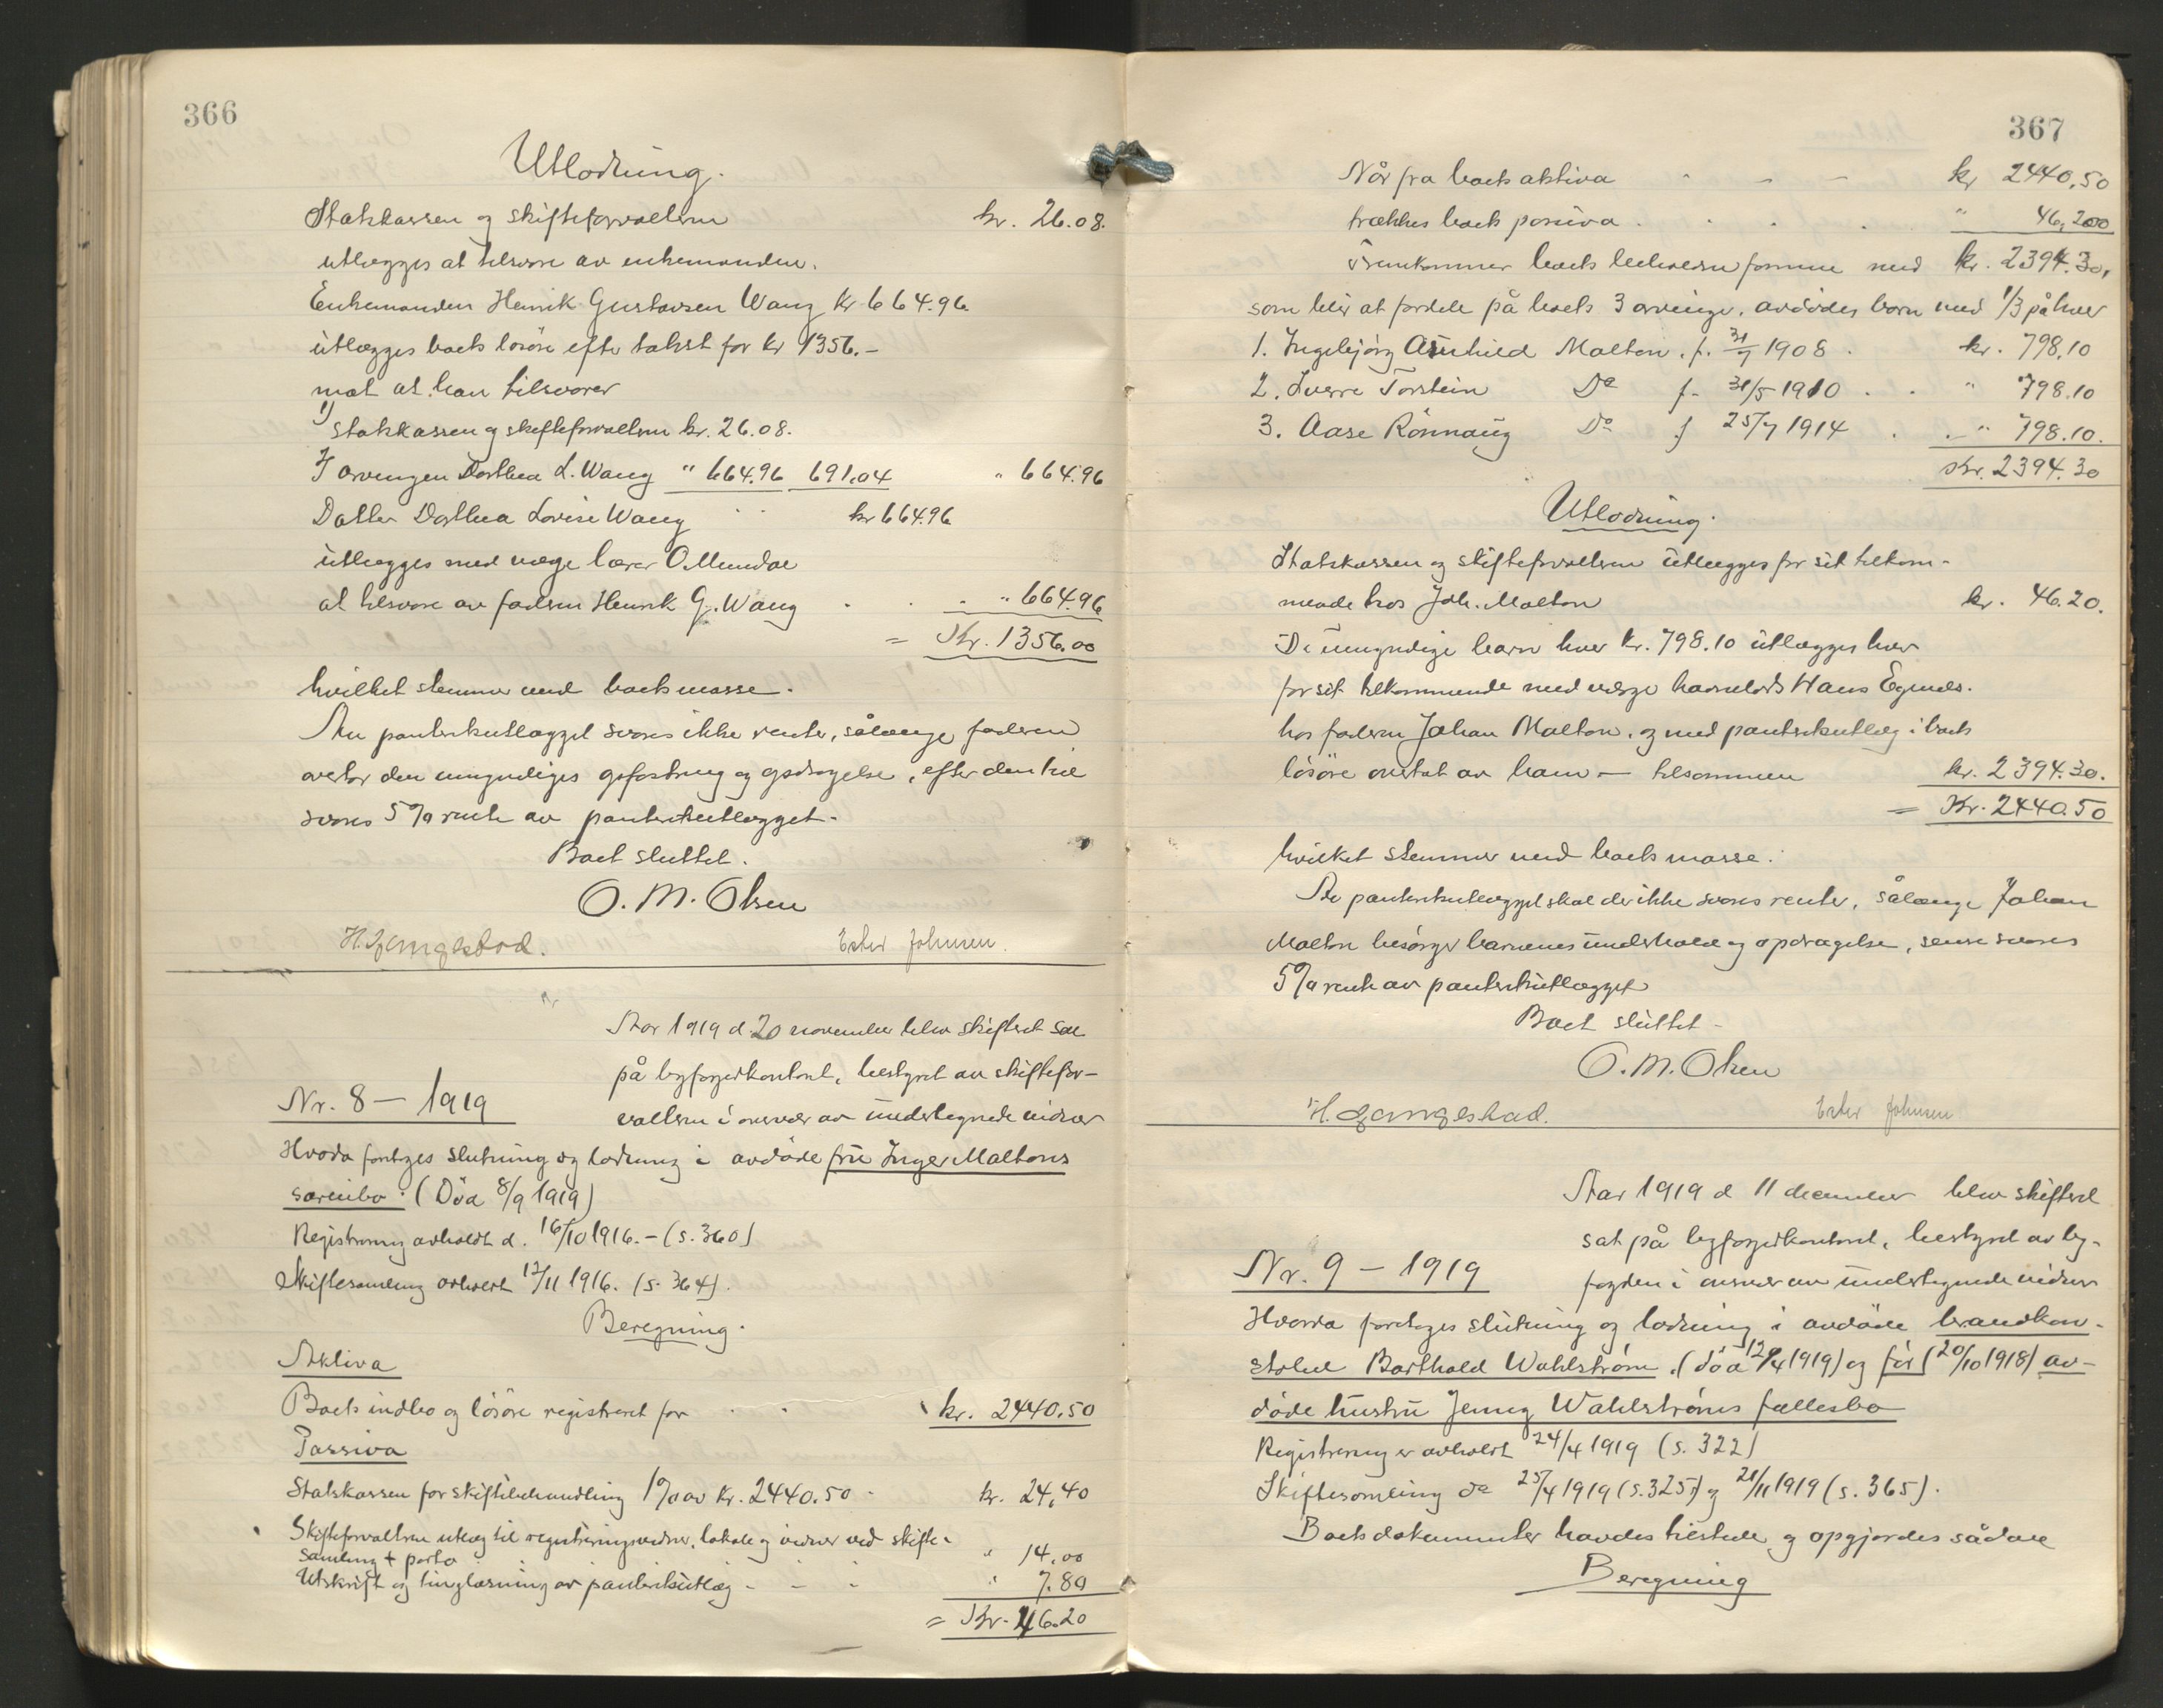 366
Utlodning.
Statskassen og skifteforvalteren kr. 26.08.
utlægges at tilsvare av enkemanden.
Enkemanden Henrik Gustavsen Wang kr 664.96
utlægges boets løsøre efter takst for kr 1356.-
mot at han tilsvarer
1) Statskassen og skifteforvalteren kr. 26.08.
2) arvingen Dorthea L. Wang " 664.96 691.04 " 664.96
Datter Dorthea Lovise Wang kr 664.96
utlægges med verge lærer O. Mundal
at tilsvare av faderen Henrik G. Wang " 664.96
= Kr. 1356.00
hvilket stemmer med boets masse.
Av panterets utlægget svares ikke renter, sålænge faderen
avertar den umyndiges opfostring og opdragelse, efter den tid
svares 5% rente av panteretsutlægget.
Boet sluttet.
O. M. Olsen
H. Gangstad. Ester Johnsen.
Aar 1919 d. 20 november blev skifteret sat
på byfogedkontoret, bestyret av skiftefor-
Nr. 8 – 1919
valteren i overvær av undertegnede vidner
Hvorda foretages slutning og lodning i avdøde fru Inger Maltons
særeibo. (Död 8/9 1919)
Registrering avholdt d. 16/10 1916. – (s. 360)
Skiftesamling avholdt 17/11 1916. (s. 364).
Beregning.
Aktiva
Boets indbo og løsøre registreret for kr. 2440.50
Passiva
Statskassen for skiftebehandling 1% av Kr. 2440.50 kr. 24,40
Skifteforvalteren utlæg til registreringsvidner, lokale og vidner ved skifte-
samling + porto " 14,00
Utskrift og tinglæsning av panteretsutlæg " 7.80
= Kr. 46.20
367
Når fra boets aktiva kr 2440.50
trækkes boets passiva " 46,200
fremkommer boets beholdne formue med kr. 2394.30,
som blir at fordele på boets 3 arvinger, avdödes barn med 1/3 på hver
1. Ingebjörg Arnhild Malton. f. 31/7 1908 kr. 798.10
2. Sverre Torstein Do f. 31/5 1910 " 798.10
3. Aase Rönnaug Do f 25/7 1914 " 798.10.
Kr. 2394.30
Utlodning.
Statskassen og skifteforvalteren utlægges for sit tilkom-
mende hos Joh. Malton kr. 46.20.
De umyndige barn hver kr. 798.10 utlægges hver
for sit tilkommende med verge Hans Egnes.
hos faderen Johan Malton, og med panteretsutlæg i boets
løsöre overtat av ham – tilsammen kr. 2394.30.
= Kr. 2440.50
hvilket stemmer med boets masse.
Av panteretsutlægget skal der ikke svares renter, sålænge Johan
Malton besörger barnenes underhold og opdragelse, senere svares
5% rente av panteretsutlægget
Boet sluttet –
O. M. Olsen
H. Gangstad. Ester Johnsen
Aar 1919 d 11 december blev skifteret
sat på byfogedkontoret, bestyret av by-
Nr. 9 – 1919
fogden i overvær av undertegnede vidner
Hvorda foretages slutning og lodning i avdöde brandkon-
stabel Barthold Wahlström. (död 12/4 1919) og før (20/10 1918) av-
döde hustru Jenny Wahlströms fællesbo
Registrering er avholdt 24/4 1919 (s. 322)
Skiftesamling do 25/4 1919 (s. 325) og 21/11 1919 (s. 365).
Boets dokumenter havdes tilstede og opgjordes sådan
Beregning